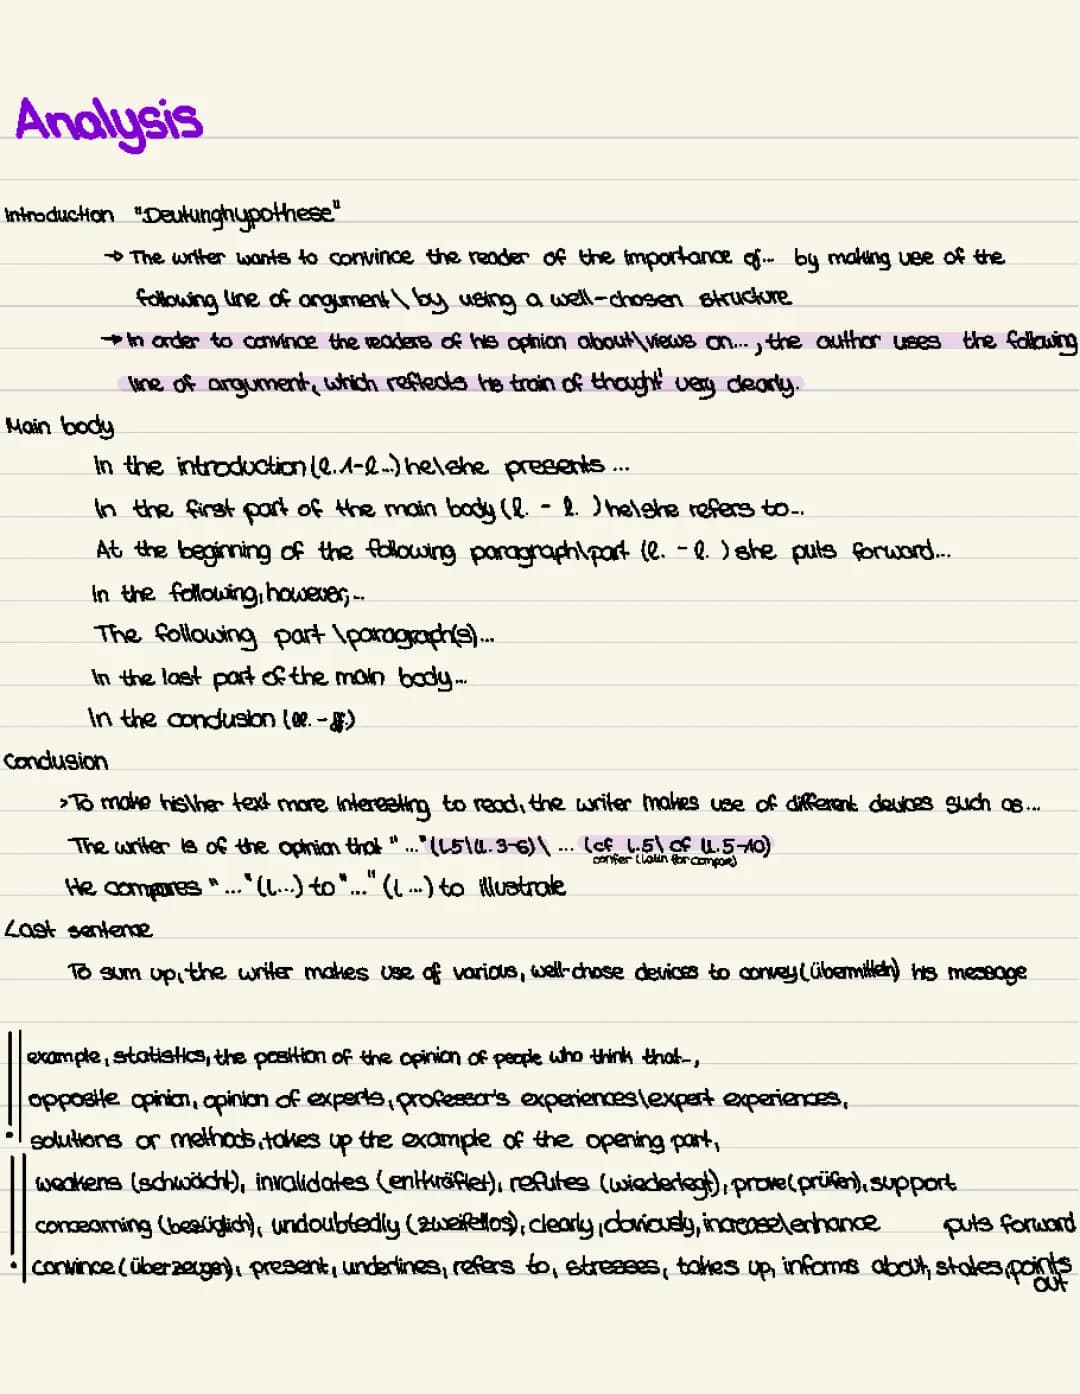 Analysis
Introduction "Deutunghypothese"
→ The writer wants to convince the reader of the importance of... by making use of the
following line of argument \ by using a well-chosen structure
→ In order to convince the readers of his opinion about\views on..., the author uses the following
line of argument, which reflects his train of thought' very clearly.
Main body
In the introduction (l.1-l...) he\she presents ...
In the first part of the main body (l. - l. ) he\she refers to...
At the beginning of the following paragraph\part (l. - l. ) she puts forward...
In the following, however, ...
The following part \paragraph(s)...
In the last part of the main body...
In the conclusion (ll. - )
Conclusion
> To make his\her text more interesting to read, the writer makes use of different devices such as ...
The writer is of the opinion that "..." (l.5\ll.3-6) \ ... (cf l.5\ cf ll.5-10)
confer (latin for compare)
He compares "..." (l...) to "..." (l ...) to illustrate
Last sentence
To sum up, the writer makes use of various, well-chose devices to convey (übermitteln) his message
example, statistics, the position of the opinion of people who think that...,
opposite opinion, opinion of experts, professor's experiences\expert experiences,
solutions or methods, takes up the example of the opening part,
weakens (schwächt), invalidates (entkräftet), refutes (wiederlegt), prove (prüfen), support
concearning (bezüglich), undoubtedly (zweifellos), clearly, obviously, increase\enhance puts forward
convince (überzeugen), present, underlines, refers to, stresses, takes up, informs about, states, points
out